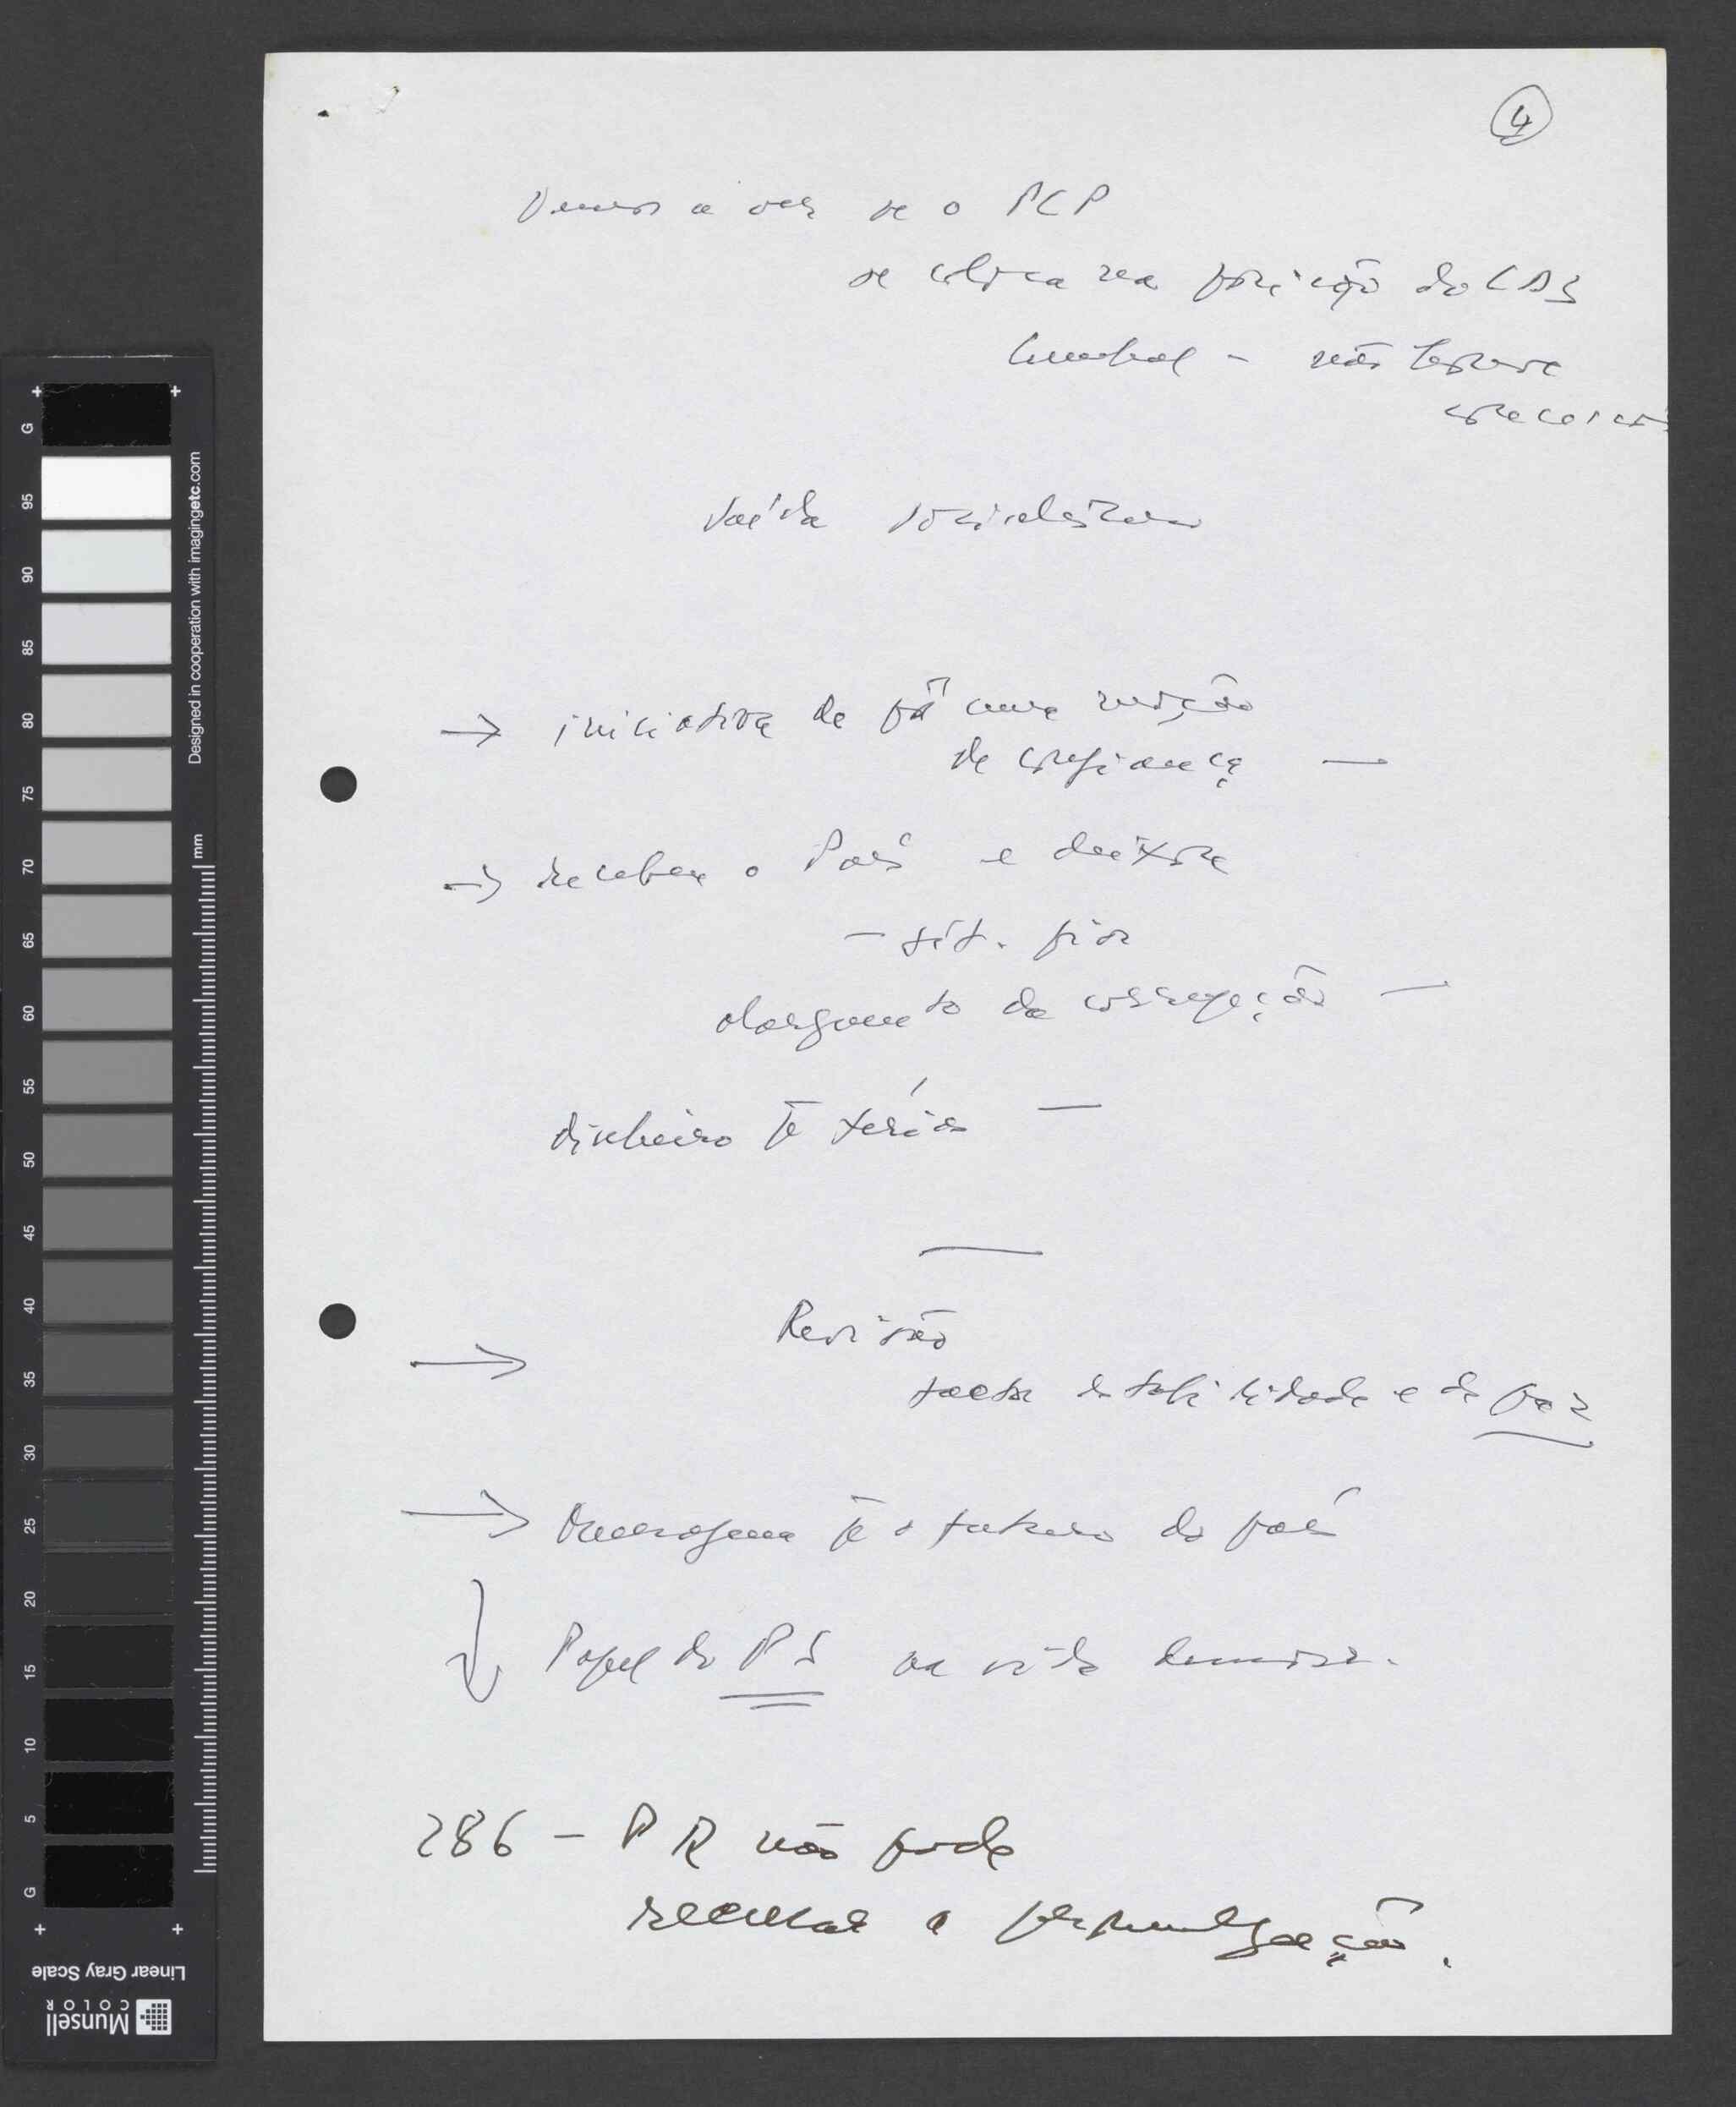 4
Vemos a ver se o PCP
se coloca na posição do CDS
Cunhal - não
saída socialista
→ iniciativa de pôr uma moção
de confiança —
→ recebeu o País e deixou
- sit. pior
alargamento da corrupção —
dinheiro p.ª férias —
Revisão
→
factor estabilidade e de paz
→ p.ª o futuro do país
↓ Papel do PS na vida
286 - PR não pode
recusar a promulgação.
G
95
90
85
80
75
70
65
60
55
50
45
40
35
30
25
20
15
10
5
G
Designed in cooperation with imagingetc.com
mm
Linear Gray Scale
Munsell
COLOR